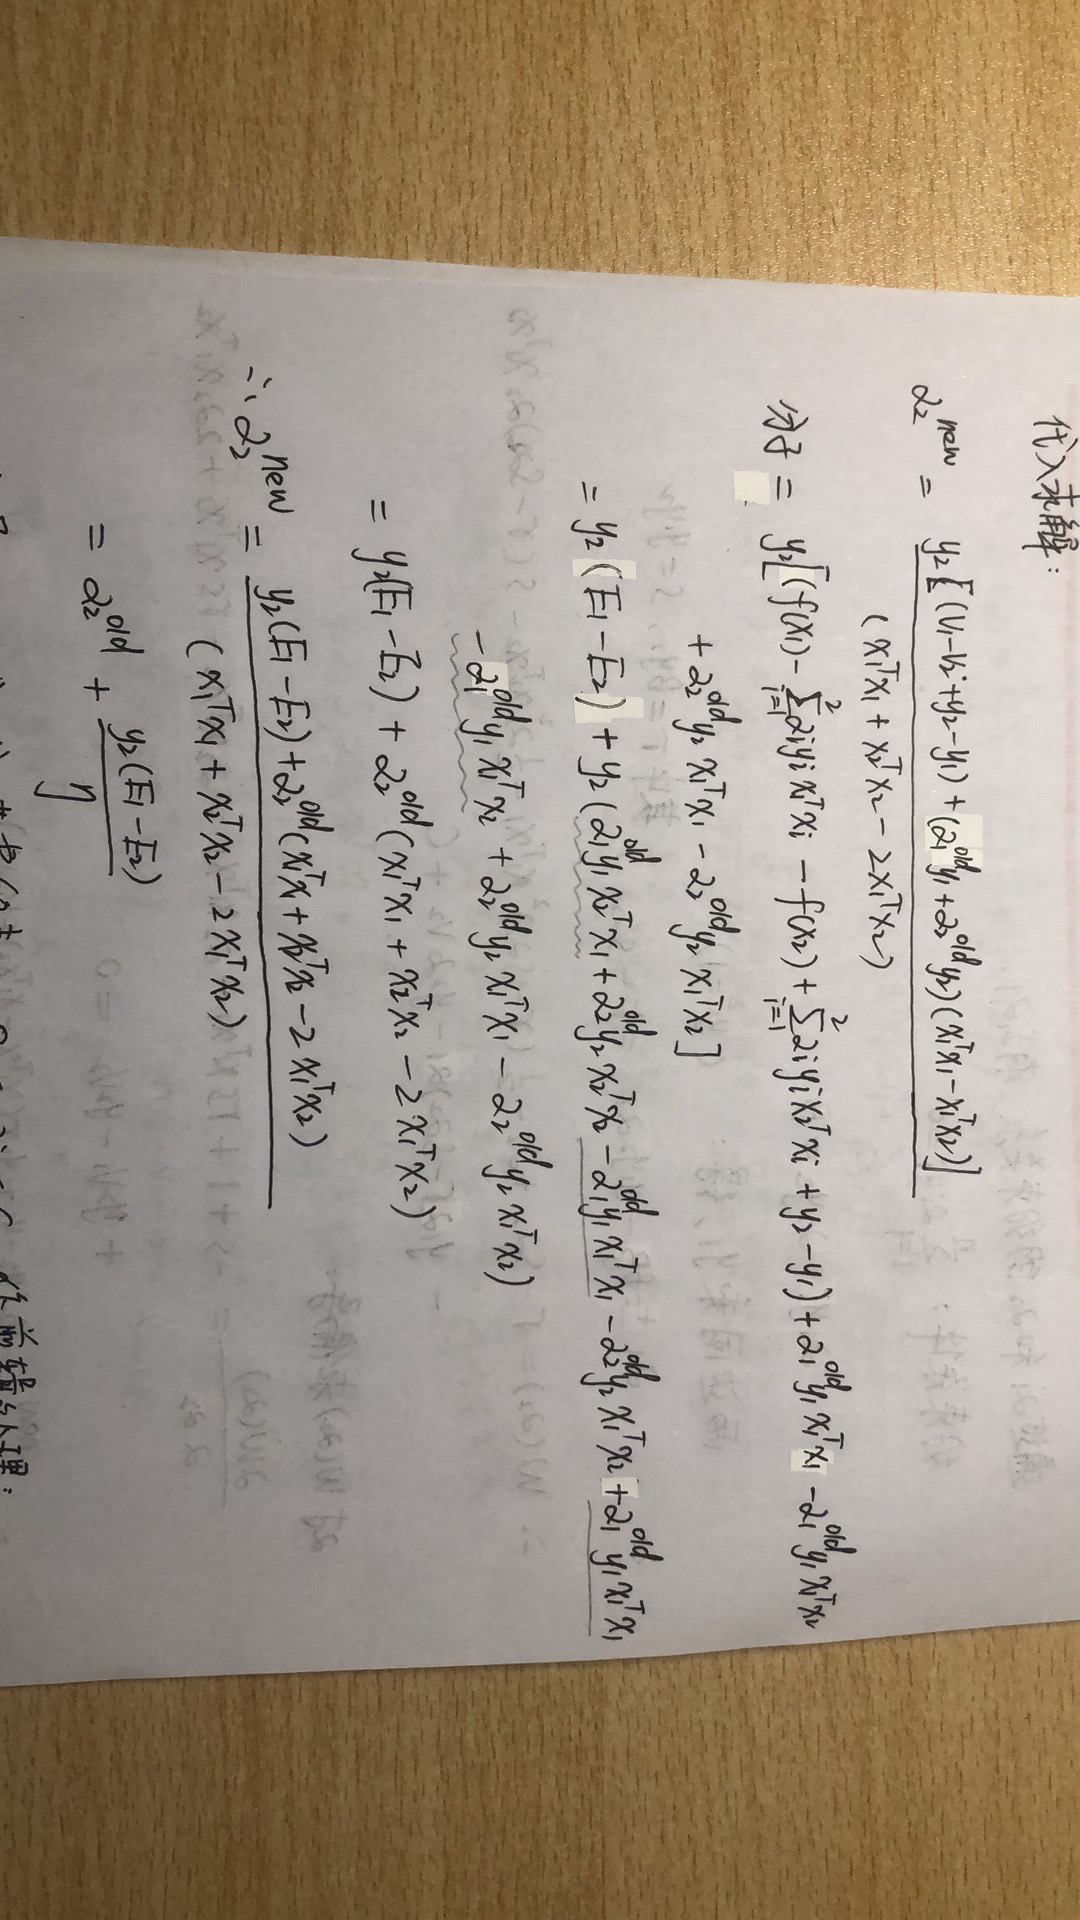 代入求解:
α₂^new = y₂[(v₁-v₂+y₂-y₁)+(α₁^old y₁+α₂^old y₂)(x₁ᵀx₁-x₁ᵀx₂)]
(x₁ᵀx₁+x₂ᵀx₂-2x₁ᵀx₂)
分子 = y₂[(f(x₁)-∑_{i=1}^{2}αᵢyᵢx₁ᵀxᵢ-f(x₂)+∑_{i=1}^{2}αᵢyᵢx₂ᵀxᵢ+y₂-y₁)+α₁^old y₁x₁ᵀx₁-α₁^old y₁x₁ᵀx₂
+α₂^old y₂x₁ᵀx₁-α₂^old y₂x₁ᵀx₂]
= y₂(E₁-E₂)+y₂(α₁^old y₁x₂ᵀx₁+α₂^old y₂x₂ᵀx₂-α₁^old y₁x₁ᵀx₁-α₂^old y₂x₁ᵀx₂+α₁^old y₁x₁ᵀx₁
-α₁^old y₁x₁ᵀx₂+α₂^old y₂x₁ᵀx₁-α₂^old y₂x₁ᵀx₂)
= y₂(E₁-E₂)+α₂^old(x₁ᵀx₁+x₂ᵀx₂-2x₁ᵀx₂)
∴ α₂^new = y₂(E₁-E₂)+α₂^old(x₁ᵀx₁+x₂ᵀx₂-2x₁ᵀx₂)
(x₁ᵀx₁+x₂ᵀx₂-2x₁ᵀx₂)
= α₂^old + y₂(E₁-E₂)
η